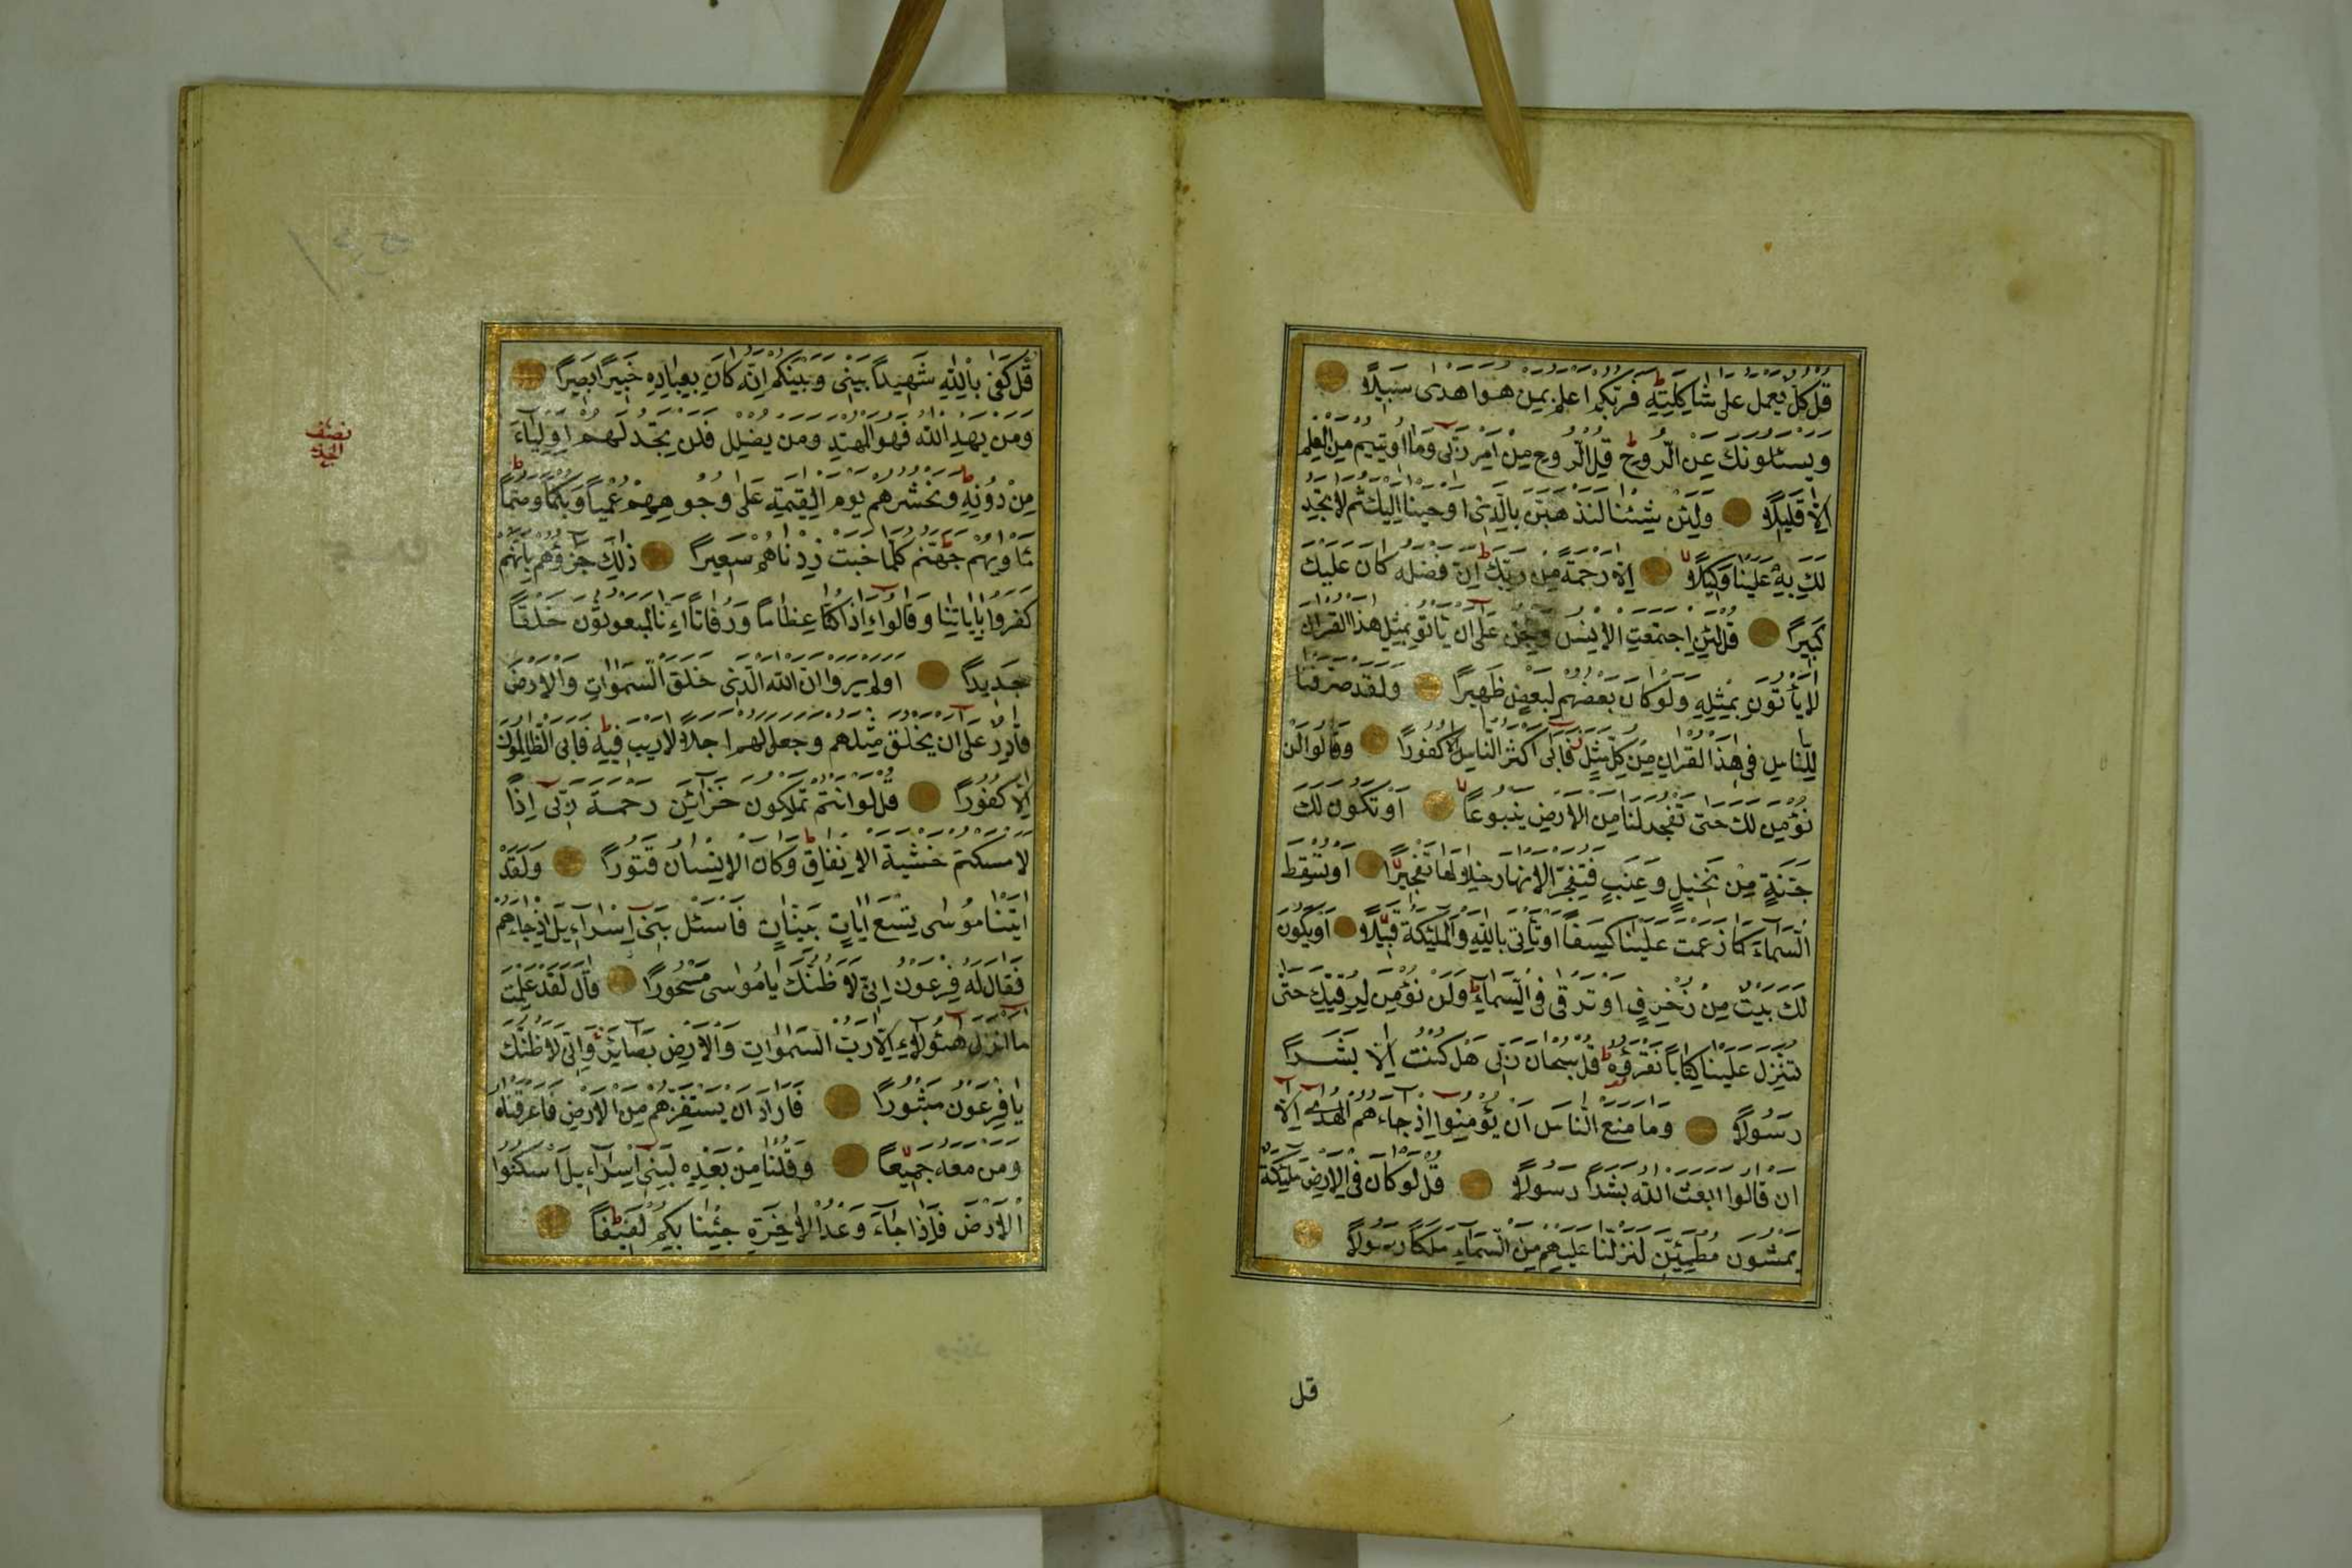 قُلْ كُلٌّ يَعْمَلُ عَلٰى شَاكِلَتِهِ فَرَبُّكُمْ اَعْلَمُ بِمَنْ هُوَ اَهْدٰى سَبِيلًا
وَيَسْـَٔلُونَكَ عَنِ الرُّوحِ قُلِ الرُّوحُ مِنْ اَمْرِ رَبِّى وَمَا اُوتِيتُمْ مِنَ الْعِلْمِ
اِلَّا قَلِيلًا وَلَئِنْ شِئْنَا لَنَذْهَبَنَّ بِالَّذِى اَوْحَيْنَا اِلَيْكَ ثُمَّ لَا تَجِدُ
لَكَ بِهِ عَلَيْنَا وَكِيلًا اِلَّا رَحْمَةً مِنْ رَبِّكَ اِنَّ فَضْلَهُ كَانَ عَلَيْكَ
كَبِيرًا قُلْ لَئِنِ اجْتَمَعَتِ الْاِنْسُ وَالْجِنُّ عَلٰى اَنْ يَاْتُوا بِمِثْلِ هٰذَا الْقُرْاٰنِ
لَا يَأْتُونَ بِمِثْلِهِ وَلَوْ كَانَ بَعْضُهُمْ لِبَعْضٍ ظَهِيرًا وَلَقَدْ صَرَّفْنَا
لِلنَّاسِ فِى هٰذَا الْقُرْاٰنِ مِنْ كُلِّ مَثَلٍ فَاَبٰى اَكْثَرُ النَّاسِ اِلَّا كُفُورًا وَقَالُوا لَنْ
نُؤْمِنَ لَكَ حَتّٰى تَفْجُرَ لَنَا مِنَ الْاَرْضِ يَنْبُوعًا اَوْ تَكُونَ لَكَ
جَنَّةٌ مِنْ نَخِيلٍ وَعِنَبٍ فَتُفَجِّرَ الْاَنْهَارَ خِلَالَهَا تَفْجِيرًا اَوْ تُسْقِطَ
السَّمَاءَ كَمَا زَعَمْتَ عَلَيْنَا كِسَفًا اَوْ تَأْتِىَ بِاللّٰهِ وَالْمَلٰئِكَةِ قَبِيلًا اَوْ يَكُونَ
لَكَ بَيْتٌ مِنْ زُخْرُفٍ اَوْ تَرْقٰى فِى السَّمَاءِ وَلَنْ نُؤْمِنَ لِرُقِيِّكَ حَتّٰى
تُنَزِّلَ عَلَيْنَا كِتَابًا نَقْرَؤُهُ قُلْ سُبْحَانَ رَبِّى هَلْ كُنْتُ اِلَّا بَشَرًا
رَسُولًا وَمَا مَنَعَ النَّاسَ اَنْ يُؤْمِنُوا اِذْ جَاءَهُمُ الْهُدٰى اِلَّا
اَنْ قَالُوا اَبَعَثَ اللّٰهُ بَشَرًا رَسُولًا قُلْ لَوْ كَانَ فِى الْاَرْضِ مَلٰئِكَةٌ
يَمْشُونَ مُطْمَئِنِّينَ لَنَزَّلْنَا عَلَيْهِمْ مِنَ السَّمَاءِ مَلَكًا رَسُولًا
قل
قُلْ كَفٰى بِاللّٰهِ شَهِيدًا بَيْنِى وَبَيْنَكُمْ اِنَّهُ كَانَ بِعِبَادِهِ خَبِيرًا بَصِيرًا
وَمَنْ يَهْدِ اللّٰهُ فَهُوَ الْمُهْتَدِ وَمَنْ يُضْلِلْ فَلَنْ تَجِدَ لَهُمْ اَوْلِيَاءَ
مِنْ دُونِهِ وَنَحْشُرُهُمْ يَوْمَ الْقِيٰمَةِ عَلٰى وُجُوهِهِمْ عُمْيًا وَبُكْمًا وَصُمًّا
مَأْوٰيهُمْ جَهَنَّمُ كُلَّمَا خَبَتْ زِدْنَاهُمْ سَعِيرًا ذٰلِكَ جَزَؤُهُمْ بِاَنَّهُمْ
كَفَرُوا بِاٰيَاتِنَا وَقَالُوا ءَاِذَا كُنَّا عِظَامًا وَرُفَاتًا ءَاِنَّا لَمَبْعُوثُونَ خَلْقًا
جَدِيدًا اَوَلَمْ يَرَوْا اَنَّ اللّٰهَ الَّذِى خَلَقَ السَّمٰوَاتِ وَالْاَرْضَ
قَادِرٌ عَلٰى اَنْ يَخْلُقَ مِثْلَهُمْ وَجَعَلَ لَهُمْ اَجَلًا لَا رَيْبَ فِيهِ فَاَبَى الظَّالِمُونَ
اِلَّا كُفُورًا قُلْ لَوْ اَنْتُمْ تَمْلِكُونَ خَزَائِنَ رَحْمَةِ رَبِّى اِذًا
لَاَمْسَكْتُمْ خَشْيَةَ الْاِنْفَاقِ وَكَانَ الْاِنْسَانُ قَتُورًا وَلَقَدْ
اٰتَيْنَا مُوسٰى تِسْعَ اٰيَاتٍ بَيِّنَاتٍ فَاسْئَلْ بَنِى اِسْرَاءِيلَ اِذْ جَاءَهُمْ
فَقَالَ لَهُ فِرْعَوْنُ اِنِّى لَاَظُنُّكَ يَامُوسٰى مَسْحُورًا قَالَ لَقَدْ عَلِمْتَ
مَا اَنْزَلَ هٰؤُلَاءِ اِلَّا رَبُّ السَّمٰوَاتِ وَالْاَرْضِ بَصَائِرَ وَاِنِّى لَاَظُنُّكَ
يَافِرْعَوْنُ مَثْبُورًا فَاَرَادَ اَنْ يَسْتَفِزَّهُمْ مِنَ الْاَرْضِ فَاَغْرَقْنَاهُ
وَمَنْ مَعَهُ جَمِيعًا وَقُلْنَا مِنْ بَعْدِهِ لِبَنِى اِسْرَاءِيلَ اسْكُنُوا
الْاَرْضَ فَاِذَا جَاءَ وَعْدُ الْاٰخِرَةِ جِئْنَا بِكُمْ لَفِيفًا
نصف